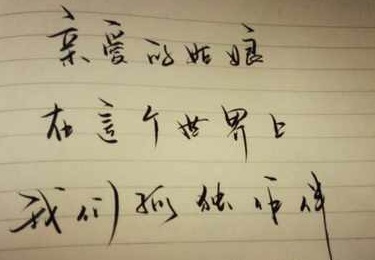 亲爱的姑娘
在這个世界上
我们孤独作伴